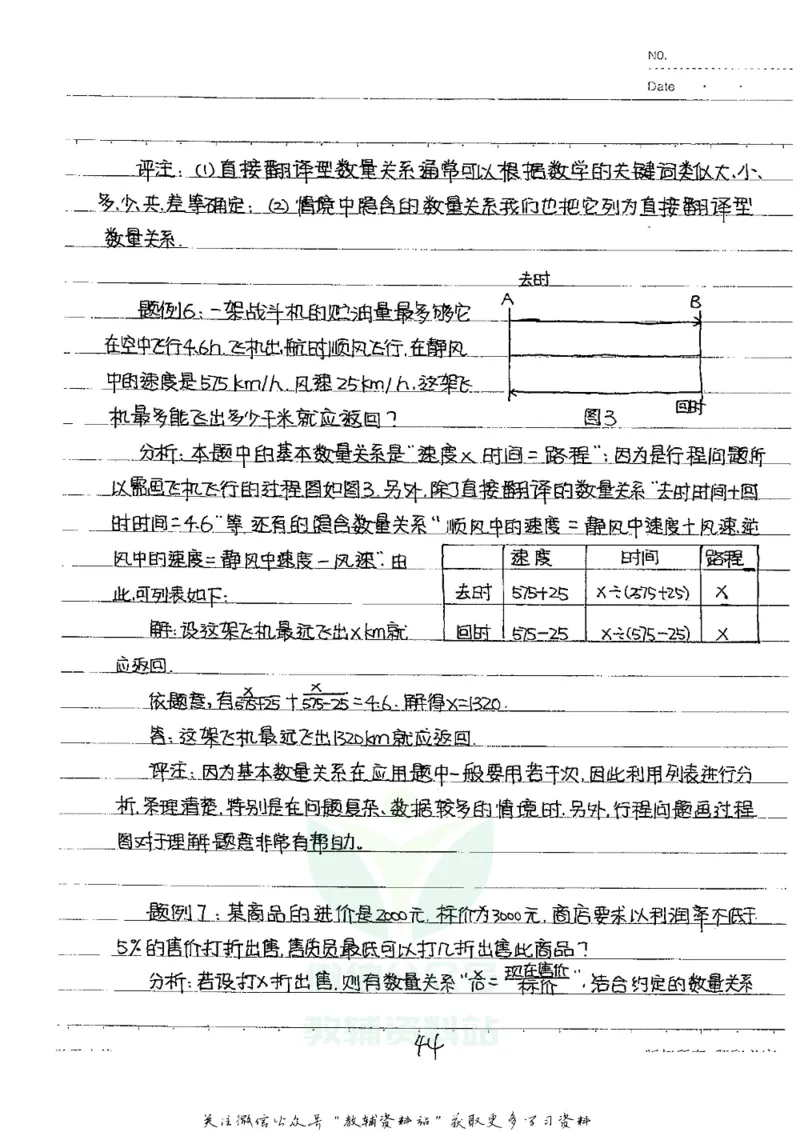 NO.
Date · ·
评注：(1)直接翻译型数量关系通常可以根据数学的关键词类似大、小、
多、少、共、差等确定；(2)情境中隐含的数量关系我们也把它列为直接翻译型
数量关系.
去时
A B
题例6：一架战斗机的贮油量最多够它
在空中飞行4.6h.飞机出航时顺风飞行,在静风
中的速度是575km/h.风速25km/h.这架飞
机最多能飞出多少千米就应返回？
回时
图3
分析：本题中的基本数量关系是“速度×时间=路程”；因为是行程问题所
以需画飞机飞行的过程图如图3.另外,除了直接翻译的数量关系“去时时间+回
时时间=4.6”等,还有的隐含数量关系“顺风中的速度=静风中速度+风速,逆
风中的速度=静风中速度-风速”.由
此,可列表如下：
速度 时间 路程
去时 575+25 x÷(575+25) x
回时 575-25 x÷(575-25) x
解：设这架飞机最远飞出xkm就
应返回.
依题意,有x/575+25+x/575-25=4.6.解得x=1320.
答：这架飞机最远飞出1320km就应返回.
评注：因为基本数量关系在应用题中一般要用若干次,因此利用列表进行分
析,条理清楚,特别是在问题复杂、数据较多的情境时.另外,行程问题画过程
图对于理解题意非常有帮助。
题例7：某商品的进价是2000元,标价为3000元,商店要求以利润率不低于
5%的售价打折出售,售货员最低可以打几折出售此商品？
分析：若设打x折出售,则有数量关系“x/10=现在售价/标价”,结合约定的数量关系
教辅资料站
44
关注微信公众号“教辅资料站”获取更多学习资料